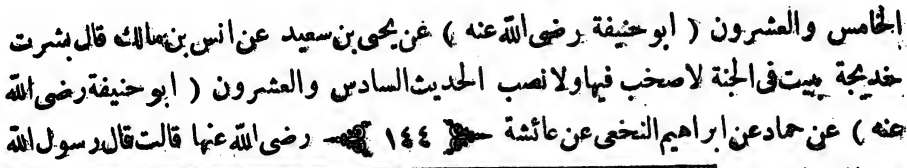 الخامس والعشرون ( ابو حنيفة رضى الله عنه ) عن يحيى بن سعيد عن انس بن مالك قال بشرت
خديجة ببيت فى الجنة لا صخب فيها ولا نصب الحديث السادس والعشرون ( ابو حنيفة رضى الله
عنه ) عن حماد عن ابراهيم النخعى عن عائشة ١٤٤ رضى الله عنها قالت قال رسول الله